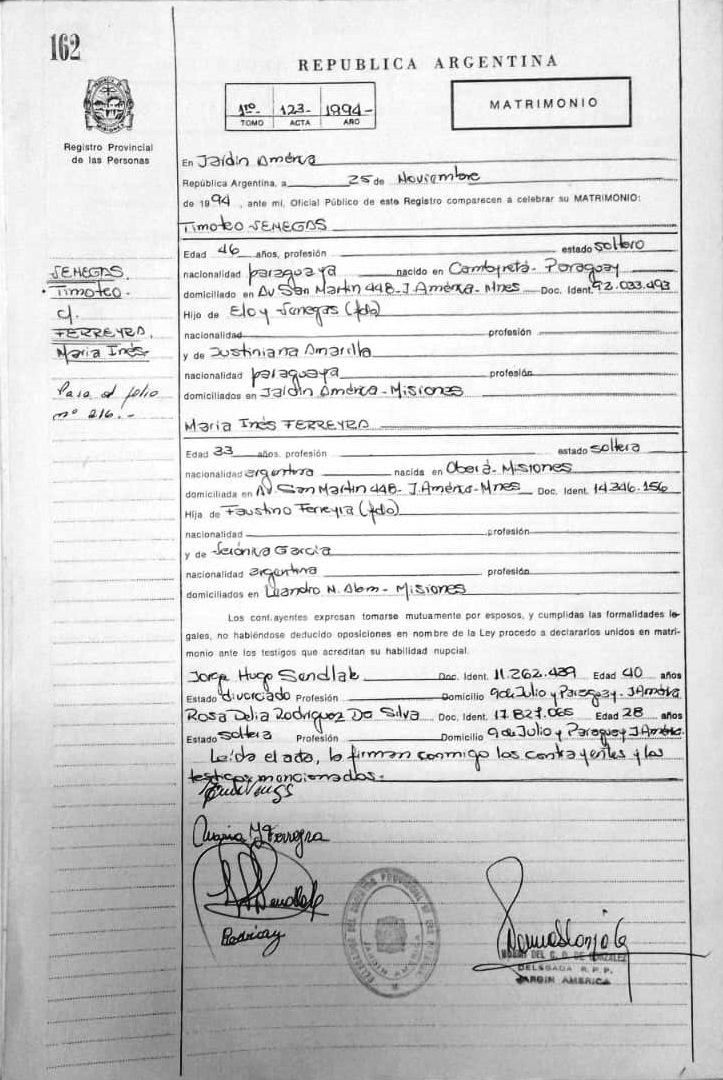 162
REPUBLICA ARGENTINA
1ro 123- 1994-
TOMO ACTA AÑO
MATRIMONIO
Registro Provincial
de las Personas
En Jardín América
República Argentina, a 25 de Noviembre
de 1994, ante mí, Oficial Público de este Registro comparecen a celebrar su MATRIMONIO:
Timoteo VENEGAS
Edad 46 años, profesión estado soltero
nacionalidad paraguaya nacido en Cambyretá- Paraguay
domiciliado en Av San Martín 448- J. América- Mnes Doc. Ident. 92.033.493
Hijo de Eloy Venegas (fdo)
nacionalidad profesión
y de Justiniana Amarilla
nacionalidad paraguaya profesión
domiciliados en Jardín América - Misiones
VENEGAS.
Timoteo-
c/.
FERREYRA,
María Inés-
Pasa al folio
nº 216.-
María Inés FERREYRA
Edad 33 años, profesión estado soltera
nacionalidad argentina nacida en Oberá- Misiones
domiciliada en Av. San Martín 448- J. América- Mnes Doc. Ident. 14.346.156
Hija de Faustino Ferreyra (fdo)
nacionalidad profesión
y de Verónica García
nacionalidad argentina profesión
domiciliados en Leandro N. Alem- Misiones
Los contrayentes expresan tomarse mutuamente por esposos, y cumplidas las formalidades le-
gales, no habiéndose deducido oposiciones en nombre de la Ley procedo a declararlos unidos en matri-
monio ante los testigos que acreditan su habilidad nupcial.
Jorge Hugo Sendlak Doc. Ident. 11.262.439 Edad 40 años
Estado divorciado Profesión Domicilio 9 de Julio y Paraguay- J América
Rosa Delia Rodriguez Da Silva Doc. Ident. 17.827.065 Edad 28 años
Estado soltera Profesión Domicilio 9 de Julio y Paraguay J Améric.
Leída el acta, la firman conmigo los contrayentes y los
testigos mencionados.
María I Ferreyra
DE GONZALEZ
DELEGADA R. P. P.
JARDIN AMERICA